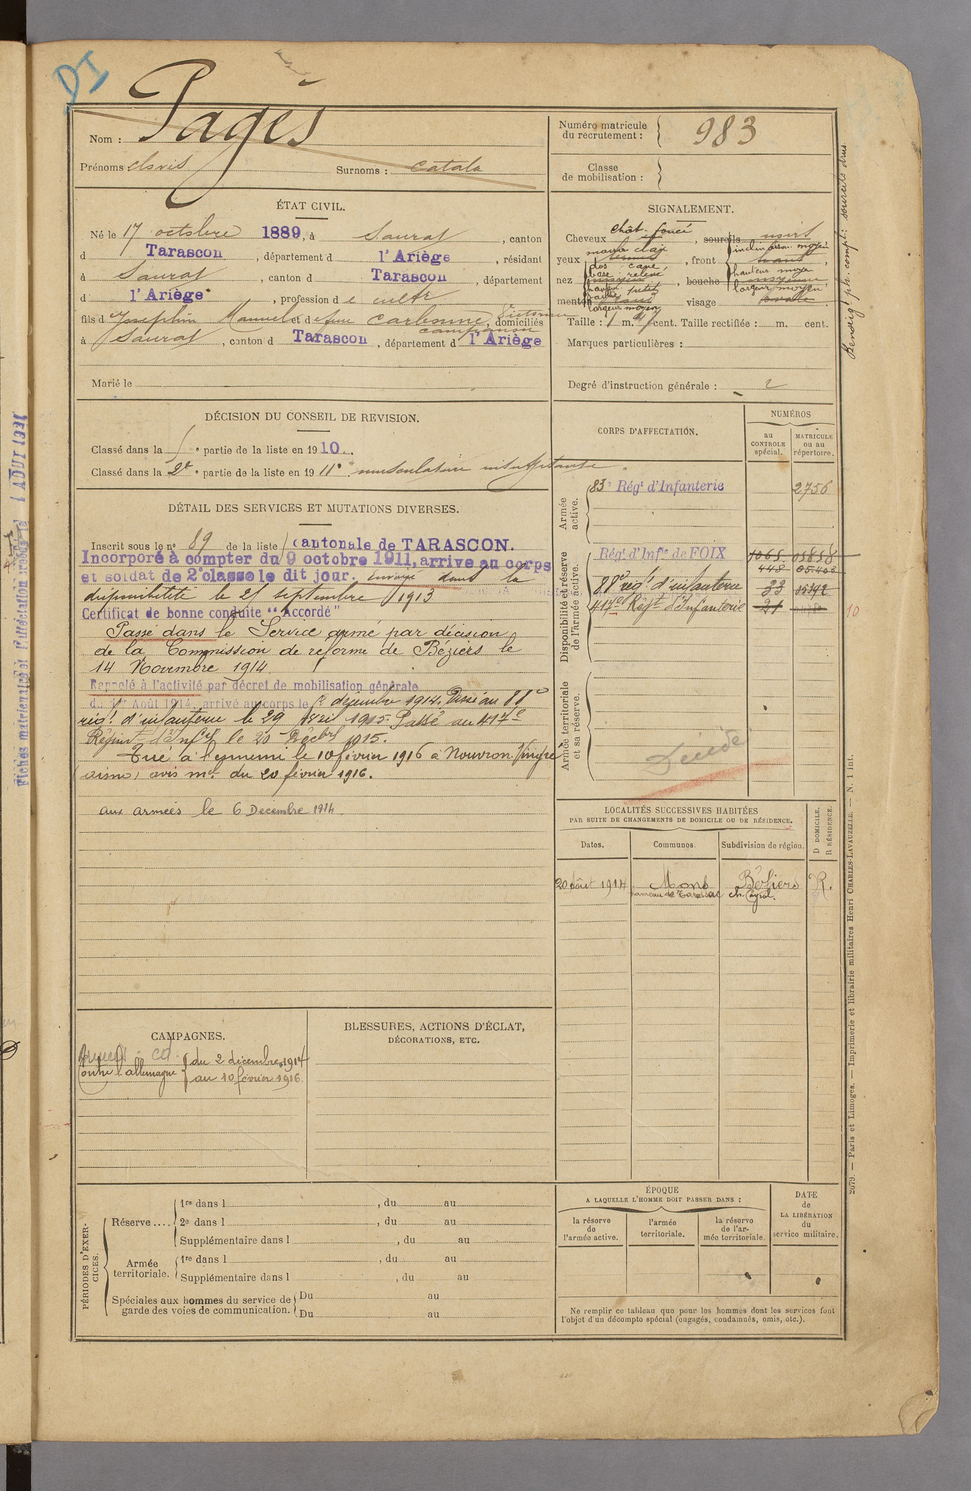 DI
Nom : Pagès
Prénoms Clovis Surnoms : Catala
Numéro matricule du recrutement : 983
Classe de mobilisation :
ÉTAT CIVIL.
Né le 17 octobre 1889, à Saurat, canton
d Tarascon, département d l'Ariège, résidant
à Saurat, canton d Tarascon, département
d' l'Ariège, profession de cultr
fils d Joseph Manuel et d Carbonne, domiciliés
à Saurat, canton d Tarascon, département d l'Ariège
Marié le
SIGNALEMENT.
Cheveux chât. foncé, sourcils noirs
yeux, front
nez, bouche
menton visage
Taille : 1 m. cent. Taille rectifiée : m. cent.
Marques particulières :
Degré d'instruction générale : 2
DÉCISION DU CONSEIL DE REVISION.
Classé dans la partie de la liste en 1910.
Classé dans la 2e partie de la liste en 1911. musculature insuffisante.
DÉTAIL DES SERVICES ET MUTATIONS DIVERSES.
Inscrit sous le n° 89 de la liste cantonale de TARASCON.
Incorporé à compter du 9 octobre 1911, arrive au corps
et soldat de 2e classe le dit jour. Envoyé dans la
disponibilité le 25 septembre 1913
Certificat de bonne conduite "Accordé"
Passé dans le Service armé par décision
de la Commission de réforme de Béziers le
14 Novembre 1914.
Rappelé à l'activité par décret de mobilisation générale
du 1er Août 1914, arrivé au corps le 2 décembre 1914. Passé au 88e
rég! d'infanterie le 29 1915. Passé au 417e
Régiment d'Infie le 20 1915.
Tué à l'ennemi le 10 février 1916 à Nouvron Vingré
(aisne) avis mel. du 20 février 1916.
aux armées le 6 Decembre 1914.
CORPS D'AFFECTATION.
NUMÉROS
au CONTROLE spécial.
MATRICULE ou au répertoire.
Armée active.
83e Régt d'Infanterie 2756
Disponibilité et réserve de l'armée active.
Régt d'Infie de FOIX 1065 05858
448
88e régt d'infanterie 33
417e Régt d'Infanterie 21
10
Armée territoriale et sa réserve.
Décédé
LOCALITÉS SUCCESSIVES HABITÉES
PAR SUITE DE CHANGEMENTS DE DOMICILE OU DE RÉSIDENCE.
Dates. Communes. Subdivision de région. D. DOMICILE. R. RÉSIDENCE.
20 août 1914 Mons Béziers R.
CAMPAGNES.
Contre l'allemagne du 2 décembre 1914
au 10 février 1916
BLESSURES, ACTIONS D'ÉCLAT,
DÉCORATIONS, ETC.
PÉRIODES D'EXERCICES.
Réserve .... 1re dans l, du au
2e dans l, du au
Supplémentaire dans l, du au
Armée territoriale. 1re dans l, du au
Supplémentaire dans l, du au
Spéciales aux hommes du service de garde des voies de communication. Du au
Du au
ÉPOQUE
A LAQUELLE L'HOMME DOIT PASSER DANS :
la réserve de l'armée active.
l'armée territoriale.
la réserve de l'armée territoriale.
DATE de LA LIBÉRATION du service militaire.
Ne remplir ce tableau que pour les hommes dont les services font
l'objet d'un décompte spécial (engagés, condamnés, omis, etc.).
2079. — Paris et Limoges. — Imprimerie et librairie militaires Henri CHARLES-LAVAUZELLE. — N. 1 int.